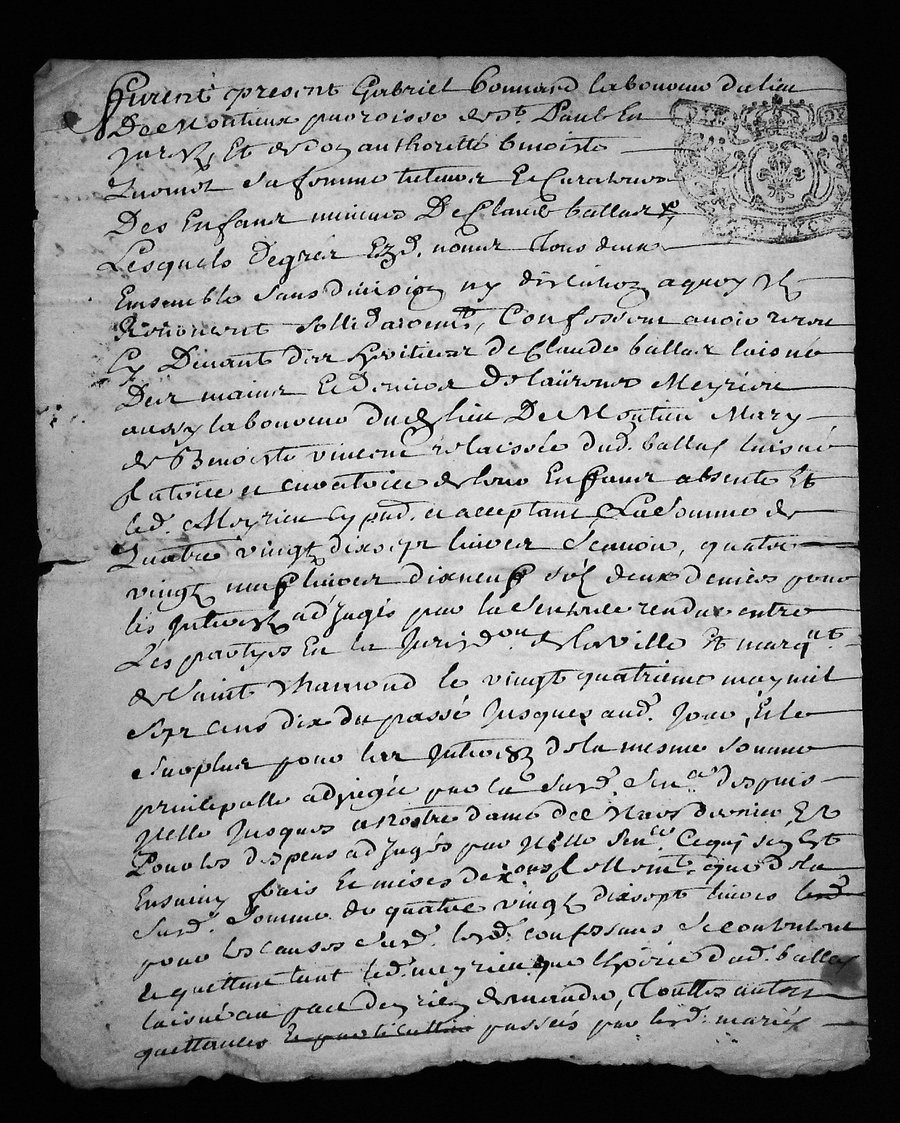 Furent present Gabriel bonnard laboureur du lieu
De Montieux parroisse de st Paul En
Jarez, Et de son authoritté benoiste
sa femme tuteur Et Curateurs
Des Enfans mineurs De Claude ballas
Lesquels De grez Ezd. noms Tous deux
Ensemble sans division ny discution a quoy Ils
Renoncent sollidairemt, Confessent avoir receu
Cy Devant des heritiers de Claude ballas laisné
Des mains Et deniers de laurens Meyrieu
aussy laboureur dud. lieu De Montieu Mary
de Benoiste vincent relaissée dud. ballas laisné
tutrice et curatrice de leurs Enfans absente Et
led. Meyrieu cy pnt. et acceptant La Somme de
Quatre vingt dixsept livres Scavoir, quatre
vingt livres dixneuf sols deux deniers pour
les Interests adjugés par la Sentence rendue entre
Les partyes En la Jurisdon. de la ville Et marqt.
de Saint Chamond le vingt quatrieme may mil
sept cens dix du passé Jusques aud. Jour, Et le
surplus pour les Interests de la mesme somme
principalle adjugée par la susd. Senca. despuis
Icelle Jusques a nostre dame de Mars dernier, Et
Pour les despens adjugés par Icelle Senca. Ce qui sen Est
Ensuivy frais Et mises dexon tellement que de la
susd. somme de quatre vingt dixsept livres lesd.
pour les causes susd. lesd. confessans se contentent
Et quittent tant led. meyrieu que lhoirie dud. ballas
laisné au pact de rien demander, Touttes autres
quittances Et particullier passées par lesd. mariés